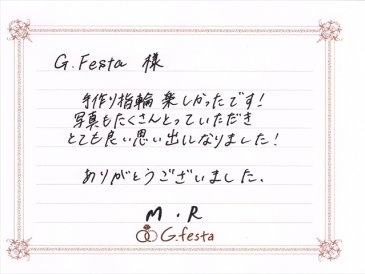 G.Festa 様
手作り指輪 楽しかったです!
写真もたくさんとっていただき
とても良い思い出になりました!
ありがとうございました.
M.R
G.festa